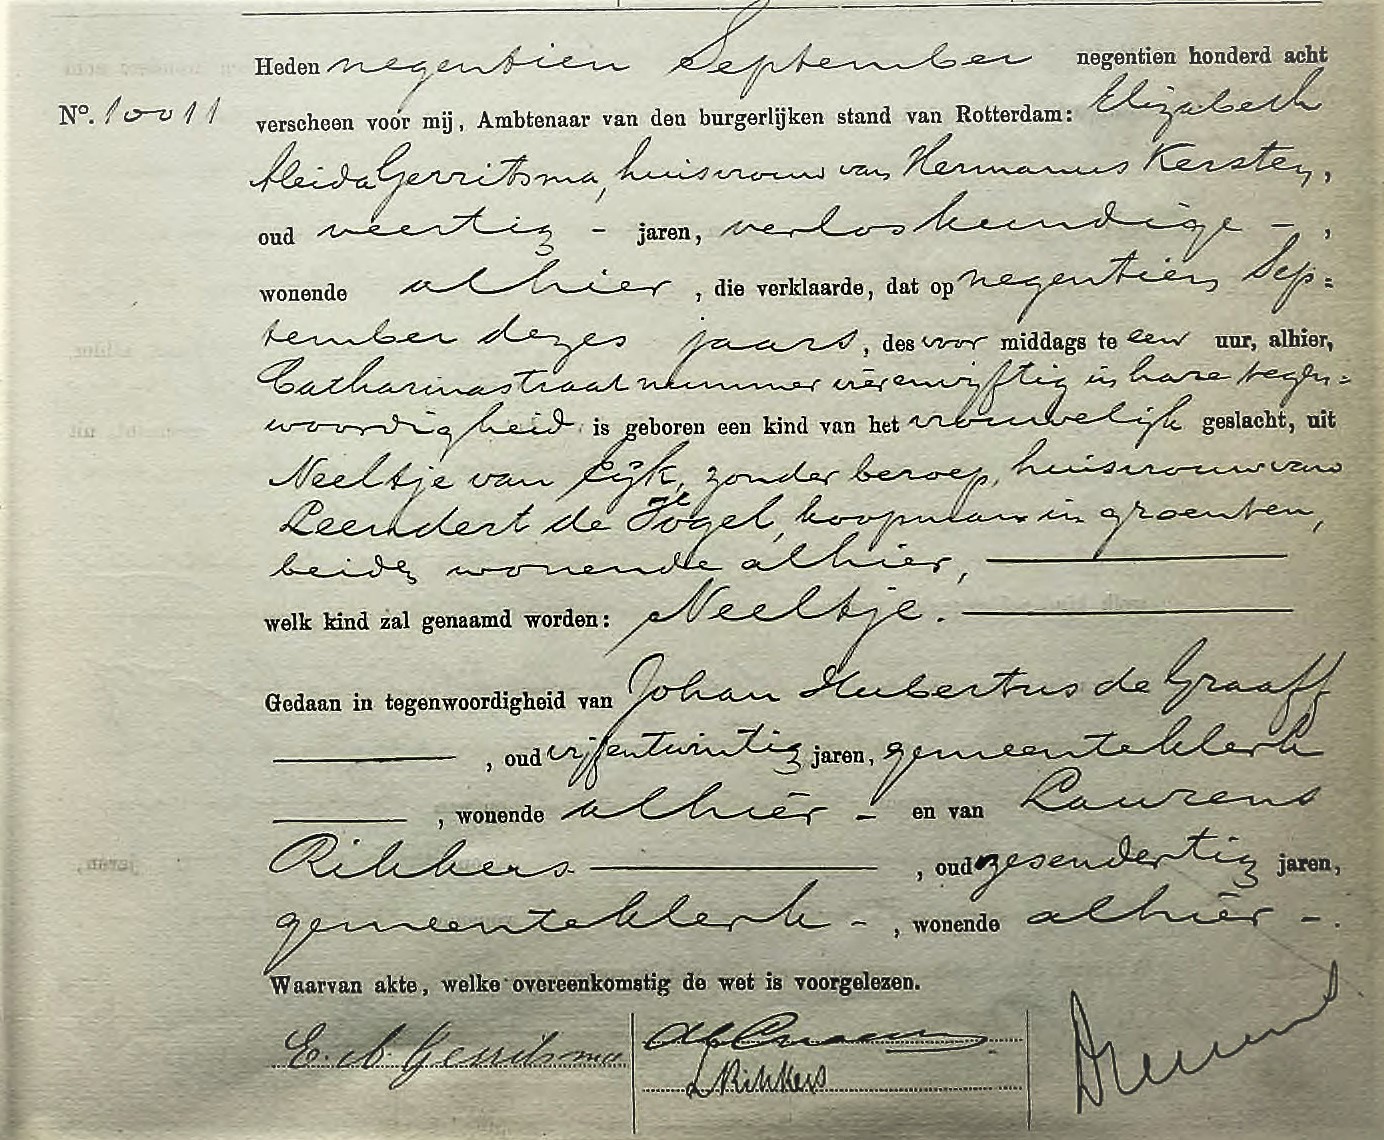 Heden negentien September negentien honderd acht
No. 10011 verscheen voor mij, Ambtenaar van den burgerlijken stand van Rotterdam: Elizabeth
Aleida Gerritsma, huisvrouw van Hermanus Kersten,
oud veertig - jaren, verloskundige - ,
wonende alhier , die verklaarde, dat op negentien Sep=
tember dezes jaars, des voor middags te een uur, alhier,
Catharinastraat nummer vierenvijftig in hare tegen=
woordigheid is geboren een kind van het vrouwelijk geslacht, uit
Neeltje van Eijk, zonder beroep, huisvrouw van
Leendert de Vogel, koopman in groenten,
beide wonende alhier,
welk kind zal genaamd worden: Neeltje.
Gedaan in tegenwoordigheid van Johan Hubertus de Graaff
, oud vijfentwintig jaren, gemeenteklerk
, wonende alhier - en van Laurens
Rikkers , oud zesendertig jaren,
gemeenteklerk - , wonende alhier - .
Waarvan akte, welke overeenkomstig de wet is voorgelezen.
E. A. Gerritsma
L Rikkers